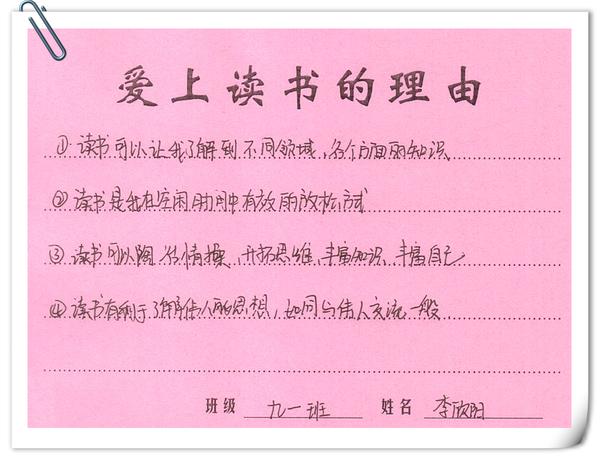 爱上读书的理由
①读书可以让我了解到不同领域,各个方面的知识
②读书是我在空闲时间中有效的放松方式
③读书可以陶冶情操,开拓思维,丰富知识、丰富自己
④读书有利于了解伟人的思想,如同与伟人交流一般
班级 九一班 姓名 李欣阳